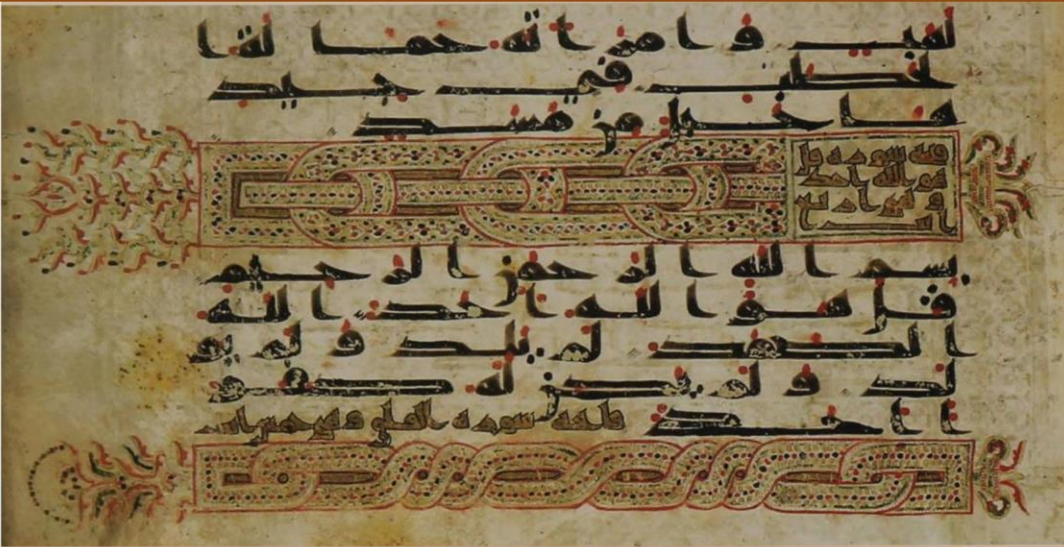 لهب وامراته حمالة ا
لحطب في جيد
ها حبل من مسد
سورة قل
هو الله احد
بسم الله الرحمن الرحيم
قل هو الله احد الله
الصمد لم يلد ولم يو
لد ولم يكن له كفو
ا احد فاتحة سورة الفلق وهي خمس ايات